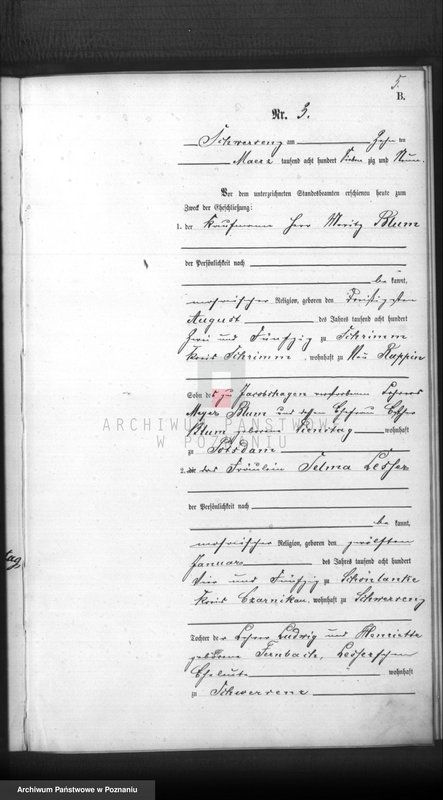 5.
B.
Nr. 3.
Schwersenz am Zehn ten
Maerz tausend acht hundert sieben zig und Neun.
Vor dem unterzeichneten Standesbeamten erschienen heute zum
Zweck der Eheschließung:
1. der Kaufmann Herr Moritz Blum
der Persönlichkeit nach
be kannt,
mosaischer Religion, geboren den dreißigsten
August des Jahres tausend acht hundert
zwei und fünfzig zu Schrimm
Kreis Schrimm, wohnhaft zu Neu Ruppin
Sohn des zu Jacobshagen verstorbenen Lehrers
Meyer Blum und dessen Ehefrau Esther
Blum geborene wohnhaft
zu Potsdam
2. die das Fräulein Selma Lesser
der Persönlichkeit nach
be kannt,
mosaischer Religion, geboren den zwölften
Januar des Jahres tausend acht hundert
vier und fünfzig zu Schönlanke
Kreis Czarnikau, wohnhaft zu Schwersenz
Tochter der Lehrer Ludwig und Henriette
geborene Lesserschen
Eheleute wohnhaft
zu Schwersenz
tag
ARCHIWUM PAŃSTWOWE
W POZNANIU
Archiwum Państwowe w Poznaniu